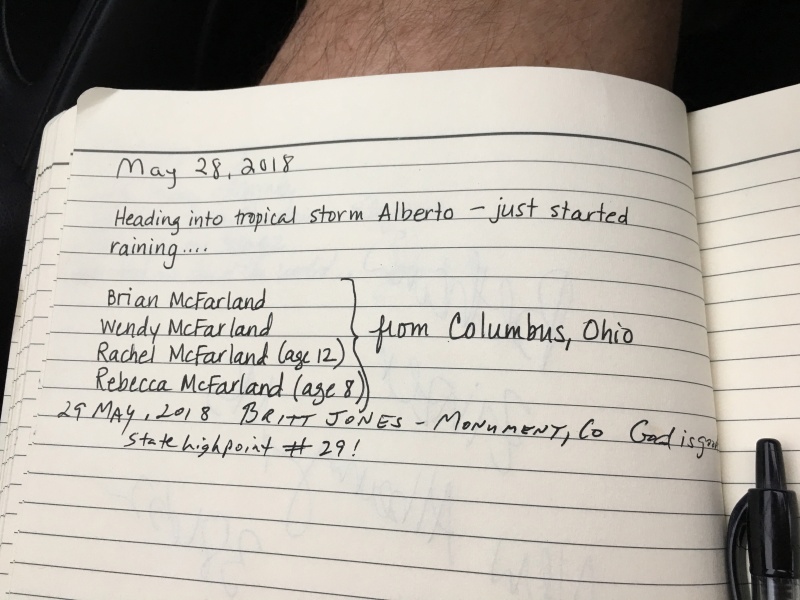 May 28, 2018
Heading into tropical storm Alberto – just started
raining....
Brian McFarland
Wendy McFarland
Rachel McFarland (age 12)
Rebecca McFarland (age 8)
from Columbus, Ohio
29 MAY, 2018 BRITT JONES – MONUMENT, CO God is
State highpoint # 29!